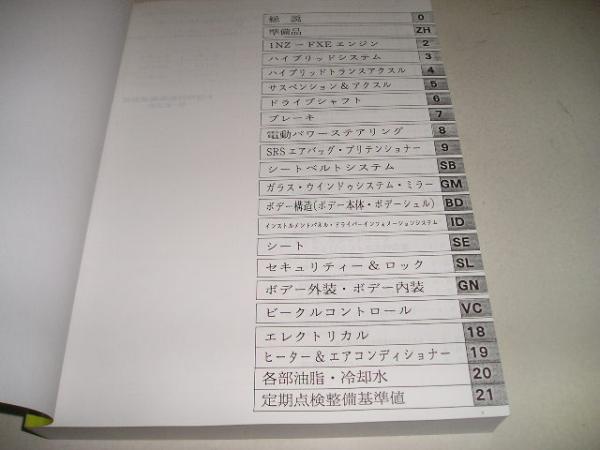 総説 0
準備品 ZH
1NZ－FXE エンジン 2
ハイブリッドシステム 3
ハイブリッドトランスアクスル 4
サスペンション&アクスル 5
ドライブシャフト 6
ブレーキ 7
電動パワーステアリング 8
SRSエアバッグ・プリテンショナー 9
シートベルトシステム SB
ガラス・ウインドゥシステム・ミラー GM
ボデー構造(ボデー本体・ボデーシェル) BD
インストルメントパネル・ドライバーインフォメーションシステム ID
シート SE
セキュリティー&ロック SL
ボデー外装・ボデー内装 GN
ビークルコントロール VC
エレクトリカル 18
ヒーター&エアコンディショナー 19
各部油脂・冷却水 20
定期点検整備基準値 21